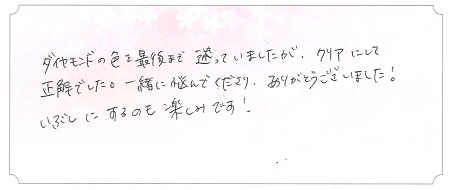 ダイヤモンドの色を最後まで迷っていましたが、クリアにして
正解でした。一緒に悩んでくださり、ありがとうございました!
いぶしにするのも楽しみです!